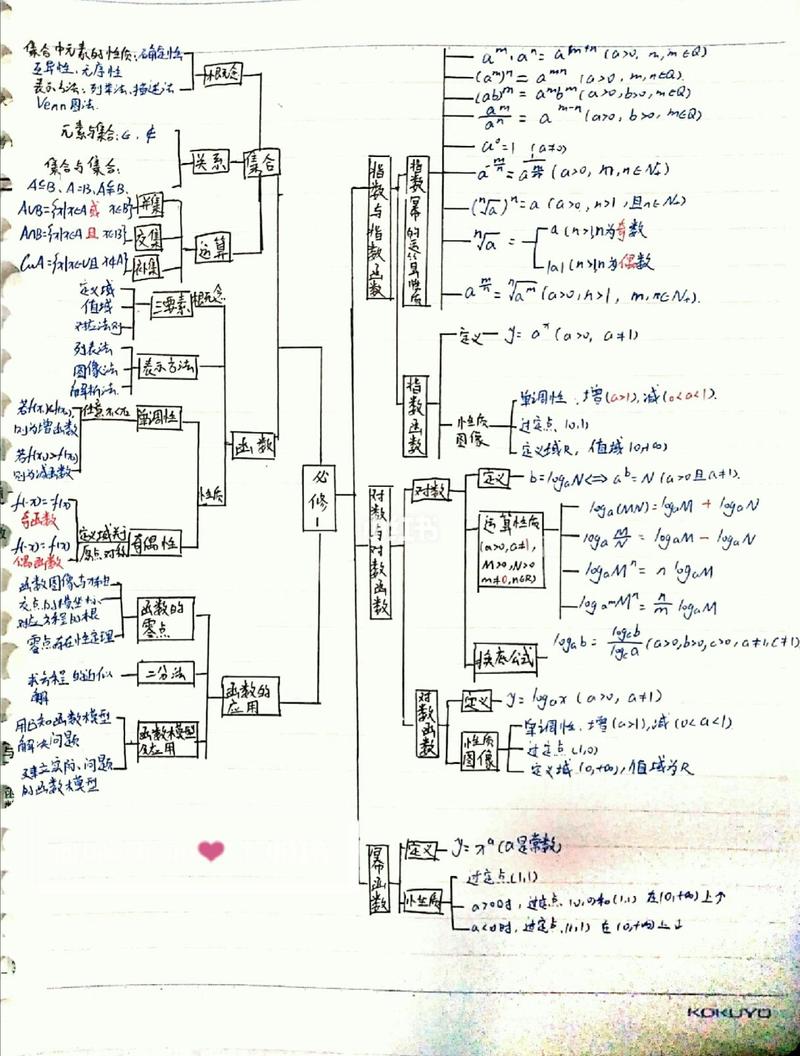 集合中元素的性质：确定性
互异性、无序性
表示方法：列举法、描述法
Venn图法.
概念
元素与集合：∈、∉
集合与集合：
A⊆B、A=B、A⊈B.
关系
集合
A∪B={x|x∈A或 x∈B}
并集
A∩B={x|x∈A且 x∈B}
交集
CuA={x|x∈U且 x∉A}
补集
运算
定义域
值域
对应法则
三要素
概念
列表法
图像法
解析法.
表示方法
函数
若f(x₁)<f(x₂)
则为增函数
若f(x₁)>f(x₂)
则为减函数
单调性
性质
f(-x)=f(x)
奇函数
f(-x)=f(x)
偶函数
定义域关于
原点对称
奇偶性
必修1
函数图像与x轴
交点的横坐标、
对应方程的根
零点存在性定理
函数的
零点
求方程的近似
解
二分法
函数的
应用
用已知函数模型
解决问题
建立实际问题
的函数模型
函数模型
及应用
指数与指数函数
指数幂的运算性质
aᵐ·aⁿ = aᵐ⁺ⁿ (a>0, m,n∈Q)
(aᵐ)ⁿ = aᵐⁿ (a>0, m,n∈Q).
(ab)ᵐ = aᵐbᵐ (a>0,b>0,m∈Q)
aᵐ/aⁿ = aᵐ⁻ⁿ (a>0,b>0,m∈Q)
a⁰=1 (a≠0)
a^(-m/n) = 1/a^(m/n) (a>0, m,n∈N₊)
(ⁿ√a)ⁿ = a (a>0,n>1,且n∈N₊)
ⁿ√a =
a (n>1,n为奇数
|a| (n>1,n为偶数
a^(m/n) = ⁿ√aᵐ (a>0,n>1, m,n∈N₊).
指数函数
定义
y=aˣ (a>0, a≠1)
性质
图像
单调性、增(a>1),减(0<a<1).
过定点(0,1)
定义域R, 值域(0,+∞)
对数与对数函数
对数
定义
b=logₐN⟺aᵇ=N (a>0且a≠1).
运算性质
(a>0,a≠1,
M>0,N>0
m≠0,n∈R)
logₐ(MN)=logₐM + logₐN
logₐ M/N = logₐM − logₐN
logₐMⁿ = n logₐM
log_(aᵐ)Mⁿ = n/m logₐM
换底公式
logₐb = log_c b/log_c a (a>0,b>0,c>0,a≠1,c≠1)
对数函数
定义
y=logₐx (a>0, a≠1)
性质
图像
单调性、增(a>1),减(0<a<1)
过定点(1,0)
定义域(0,+∞),值域为R
幂函数
定义
y=xᵃ(a是常数)
性质
过定点(1,1)
a>0时, 过定点(0,0)和(1,1) 在(0,+∞)上↑
a<0时, 过定点(1,1) 在(0,+∞)上↓
KOKUYO